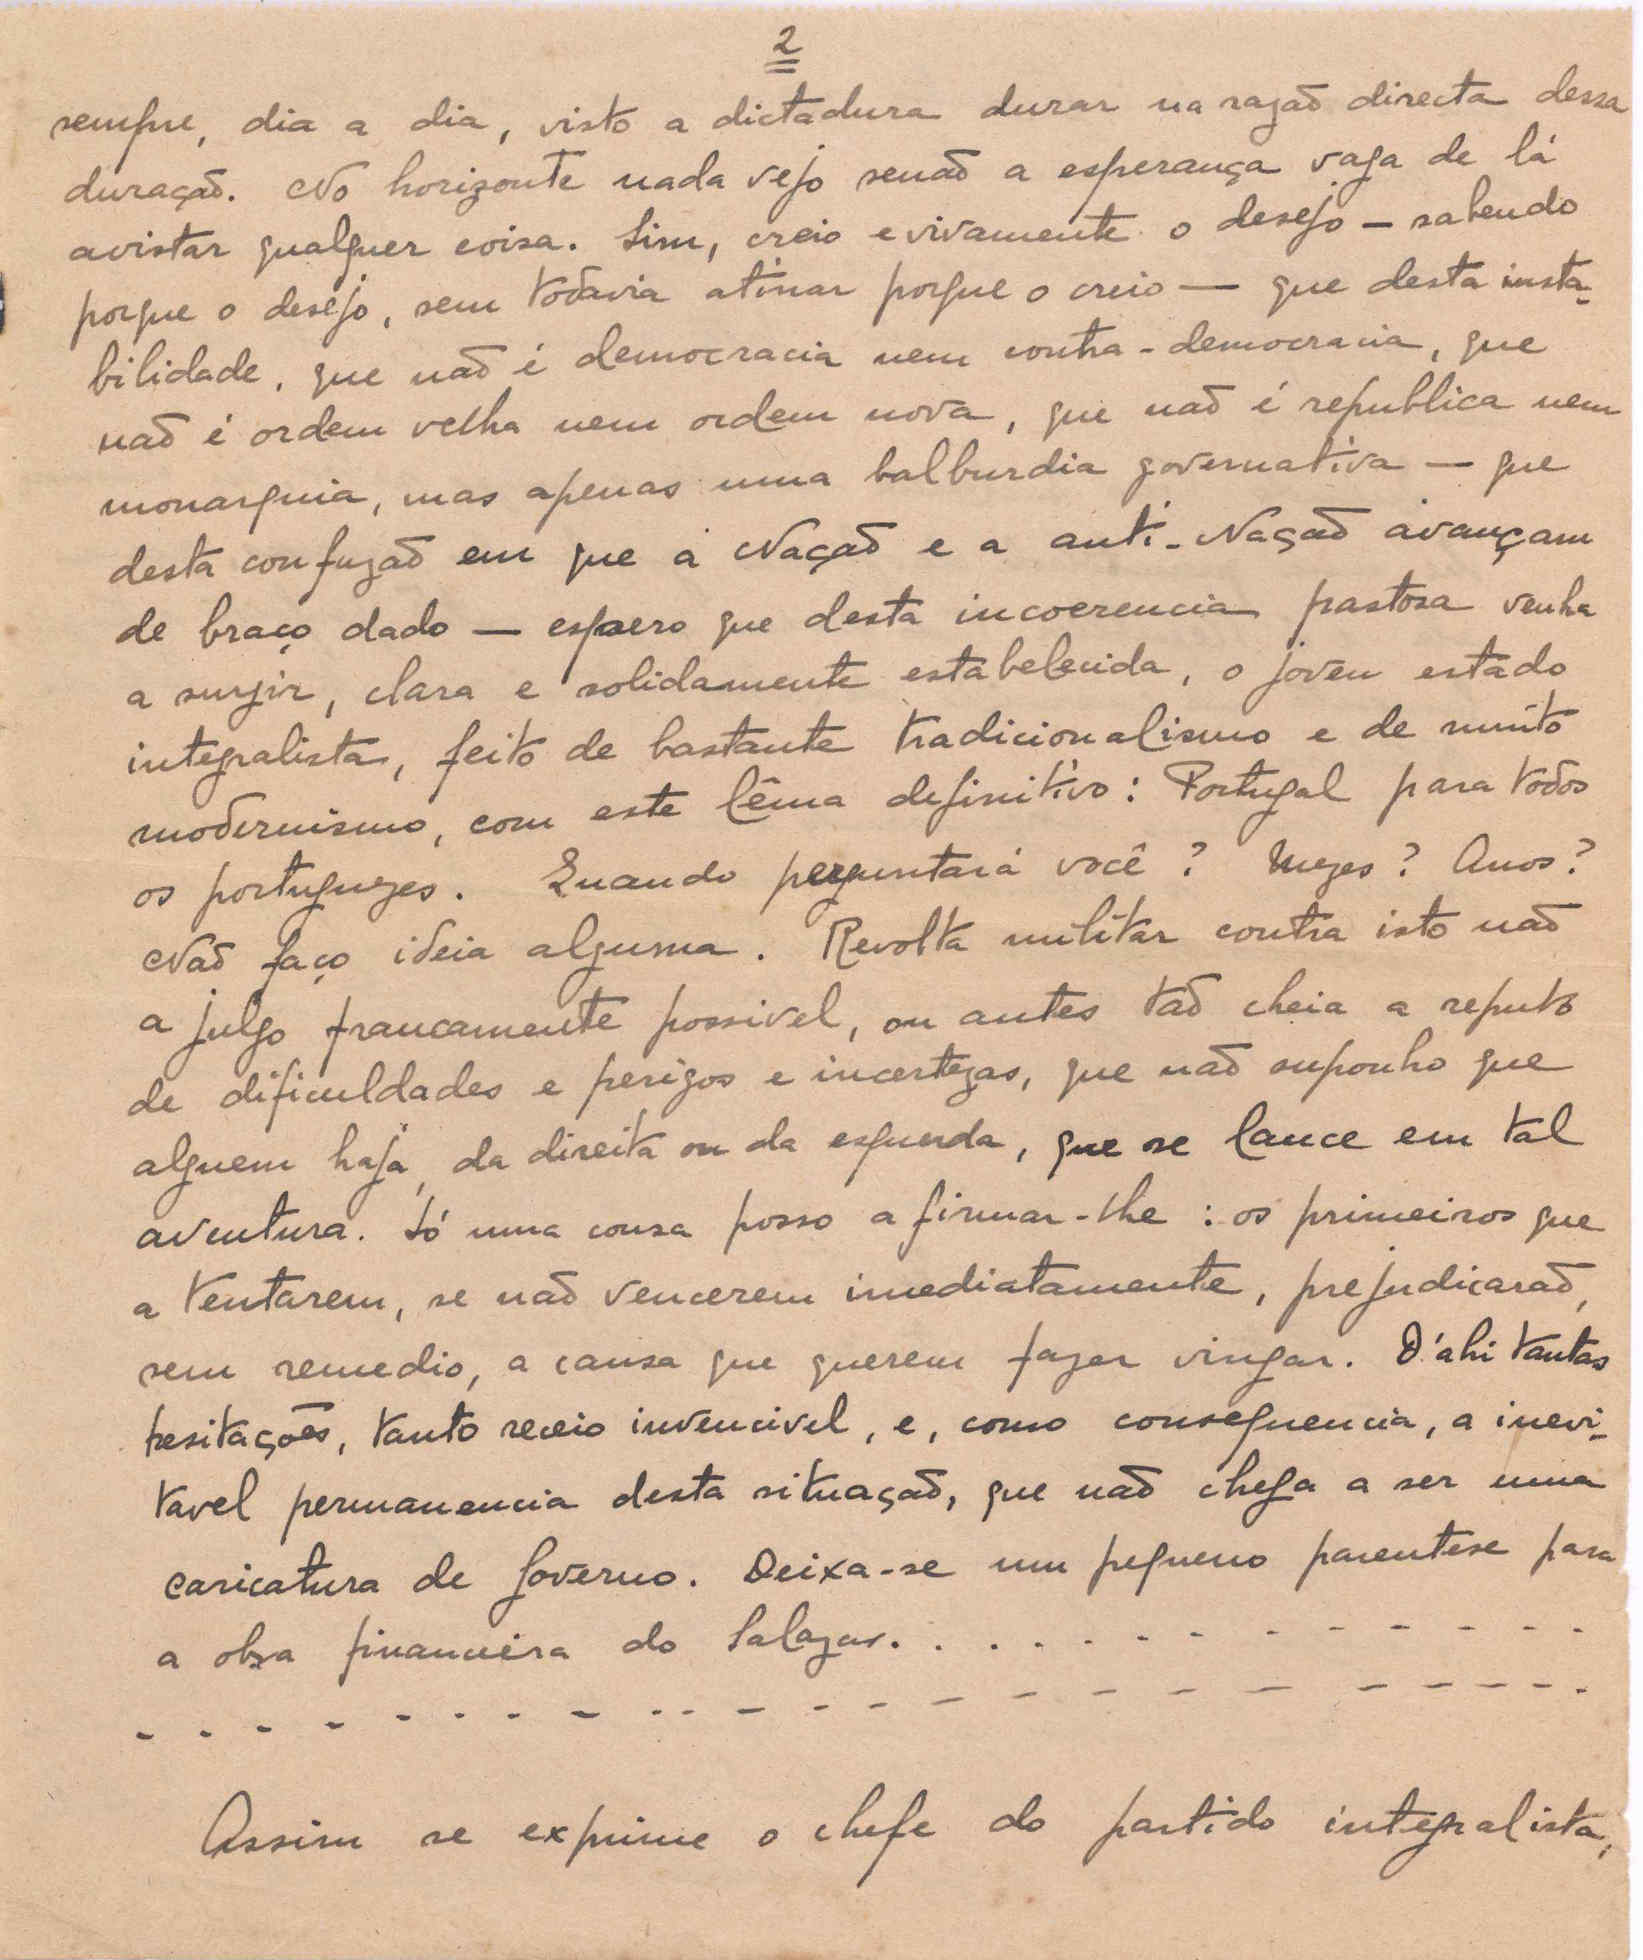 2
sempre, dia a dia, visto a dictadura durar na razaõ directa dessa
duraçaõ. No horizonte nada vejo senaõ a esperança vaga de lá
avistar qualquer coisa. Sim, creio e vivamente o desejo — sabendo
porque o desejo, sem todavia atinar porque o creio — que desta insta-
bilidade, que naõ é democracia nem contra-democracia, que
naõ é ordem velha nem ordem nova, que naõ é republica nem
monarquia, mas apenas uma balburdia governativa — que
desta confuzaõ em que a Naçaõ e a anti-Naçaõ avançam
de braço dado — espero que desta incoerencia pastosa venha
a surgir, clara e solidamente estabelecida, o joven estado
integralista, feito de bastante tradicionalismo e de muito
modernismo, com este lêma definitivo: Portugal para todos
os portuguezes. Quando perguntará você? Mezes? Anos?
Naõ faço ideia alguma. Revolta militar contra isto naõ
a julgo francamente possivel, ou antes taõ cheia a reputo
de dificuldades e perigos e incertezas, que naõ suponho que
alguem haja, da direita ou da esquerda, que se lance em tal
aventura. Só uma cousa posso afirmar-lhe: os primeiros que
a tentarem, se naõ vencerem imediatamente, prejudicaraõ,
sem remedio, a causa que querem fazer vingar. D'ahi tantas
hesitações, tanto receio invencivel, e, como consequencia, a inevi-
tavel permanencia desta situaçaõ, que naõ chega a ser uma
caricatura de Governo. Deixa-se um pequeno parentese para
a obra financeira do Salazar. . . . . . . . . . . . . .
- . - - - . . - . . - - - - - - - - - - - - .
Assim se exprime o chefe do partido integralista,